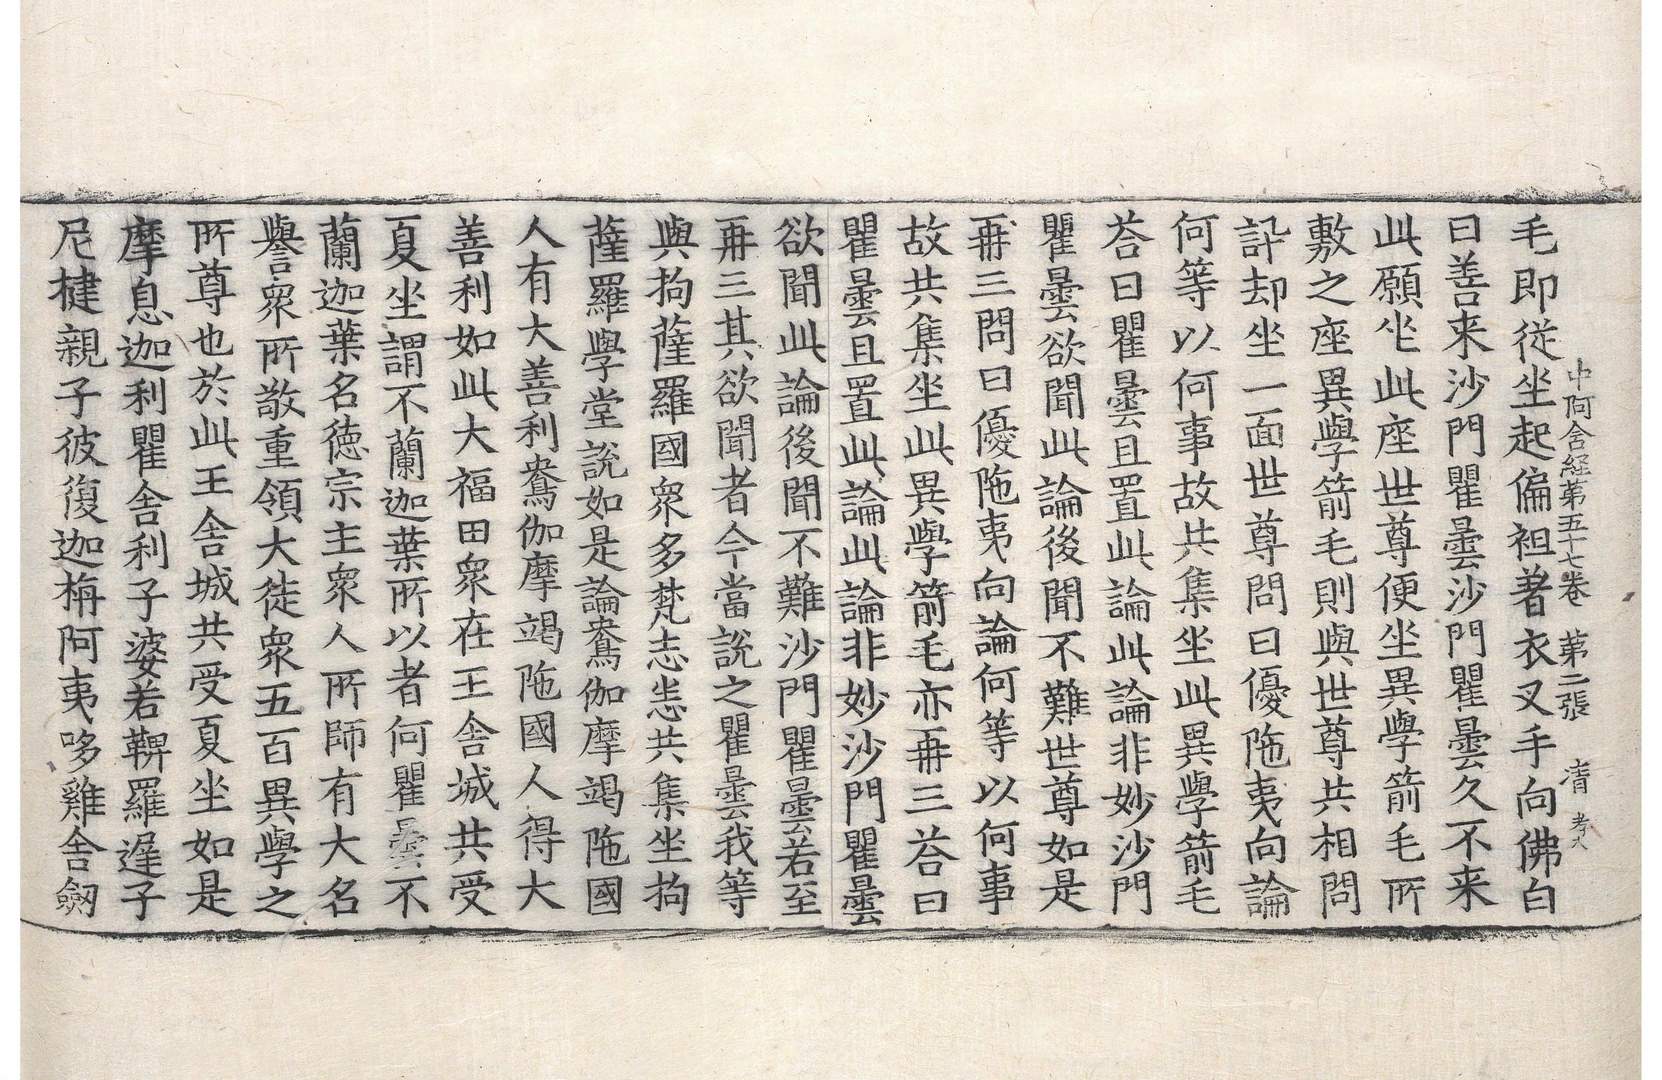 中阿含経第五十七卷 第二張 清
毛即従坐起偏袒著衣叉手向佛白
曰善来沙門瞿曇沙門瞿曇久不来
此願坐此座世尊便坐異學箭毛所
敷之座異學箭毛則與世尊共相問
訊却坐一面世尊問曰優陁夷向論
何等以何事故共集坐此異學箭毛
荅曰瞿曇且置此論此論非妙沙門
瞿曇欲聞此論後聞不難世尊如是
再三問曰優陁夷向論何等以何事
故共集坐此異學箭毛亦再三荅曰
瞿曇且置此論此論非妙沙門瞿曇
欲聞此論後聞不難沙門瞿曇若至
再三其欲聞者今當説之瞿曇我等
與拘薩羅國衆多梵志悉共集坐拘
薩羅學堂説如是論鴦伽摩竭陁國
人有大善利鴦伽摩竭陁國人得大
善利如此大福田衆在王舍城共受
夏坐謂不蘭迦葉所以者何瞿曇不
蘭迦葉名徳宗主衆人所師有大名
譽衆所敬重領大徒衆五百異學之
所尊也於此王舍城共受夏坐如是
摩息迦利瞿舍利子婆若鞞羅遟子
尼揵親子彼復迦栴阿夷哆雞舍劔